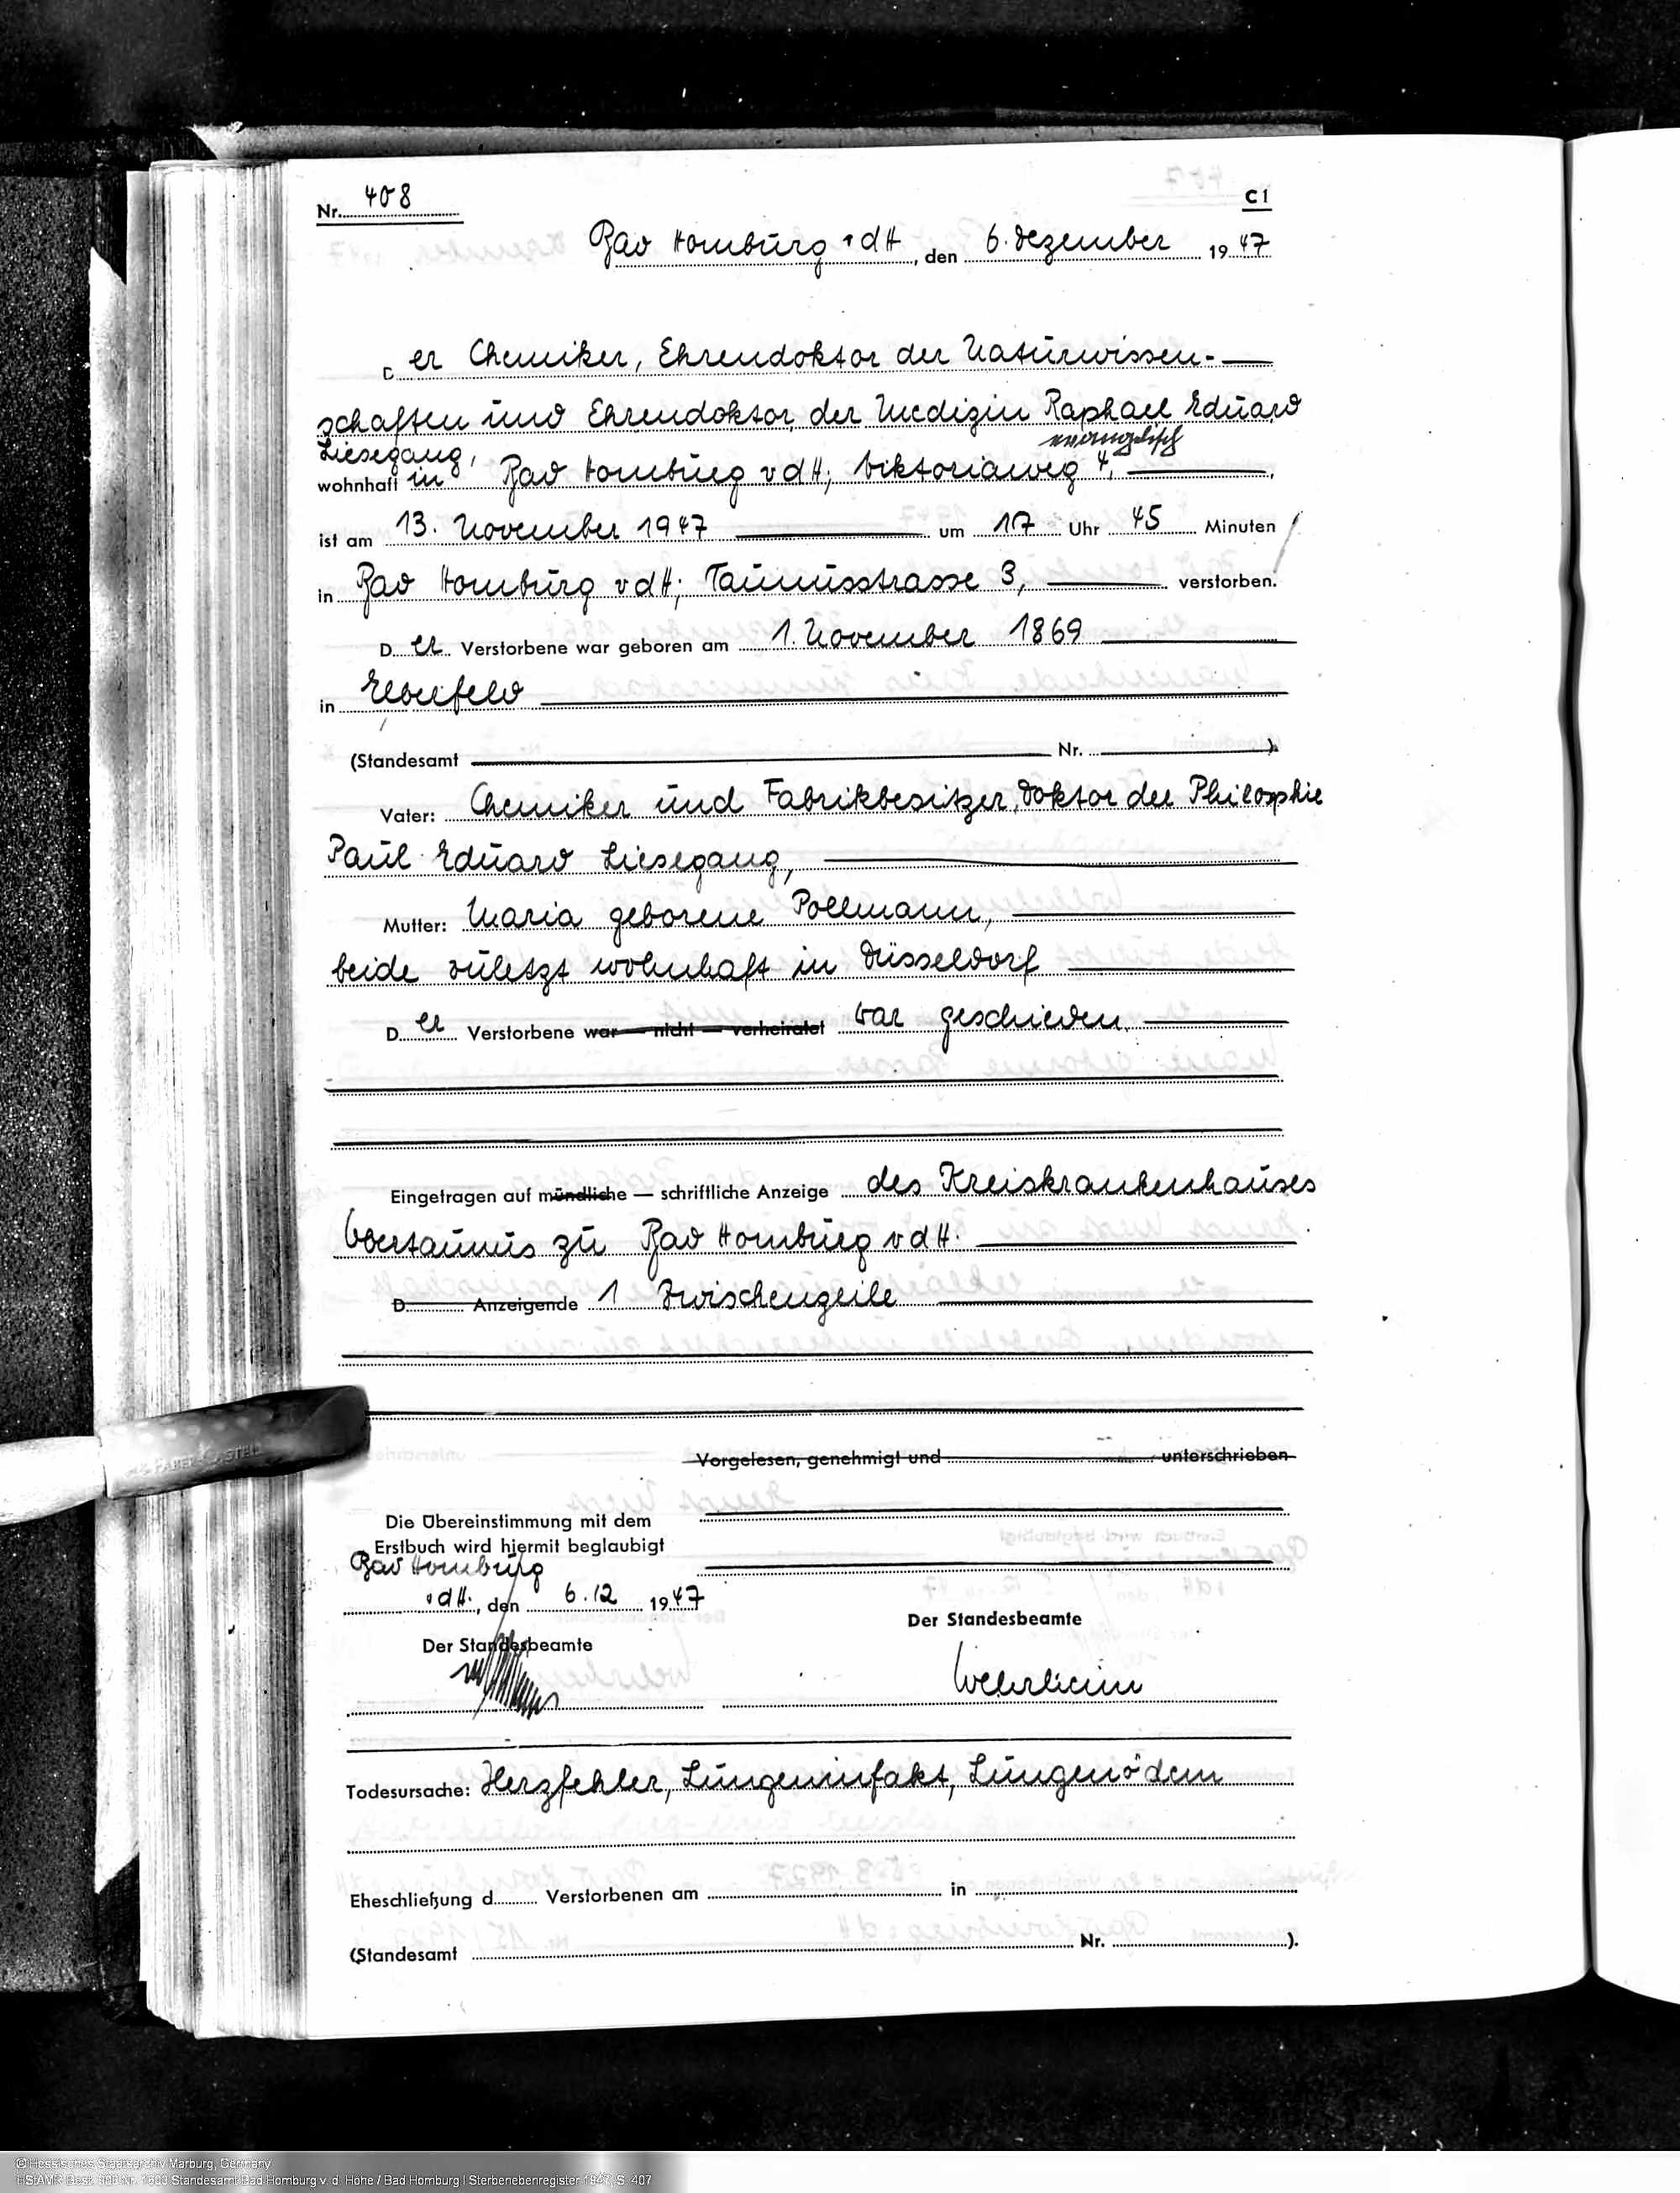 Nr. 408
C1
Bad Homburg v d H, den 6. Dezember 1947
Der Chemiker, Ehrendoktor der Naturwissen-
schaften und Ehrendoktor der Medizin Raphael Eduard
Liesegang, evangelisch
wohnhaft in Bad Homburg v d H; Viktoriaweg 4,
ist am 13. November 1947 um 17 Uhr 45 Minuten
in Bad Homburg v d H; Taunusstrasse 3, verstorben.
Der Verstorbene war geboren am 1. November 1869
in Elberfeld
(Standesamt Nr. )
Vater: Chemiker und Fabrikbesitzer, Doktor der Philosphie
Paul Eduard Liesegang,
Mutter: Maria geborene Pollmann,
beide zuletzt wohnhaft in Düsseldorf
Der Verstorbene war — nicht — verheiratet war geschieden.
Eingetragen auf mündliche — schriftliche Anzeige des Kreiskrankenhauses
Obertaunus zu Bad Homburg v d H.
D Anzeigende 1 Zwischenzeile
Vorgelesen, genehmigt und unterschrieben
Die Übereinstimmung mit dem
Erstbuch wird hiermit beglaubigt
Bad Homburg
v d H., den 6.12 1947
Der Standesbeamte
Der Standesbeamte
Wehrheim
Todesursache: Herzfehler, Lungeninfakt, Lungenödem
Eheschließung d Verstorbenen am in
(Standesamt Nr. ).
FABER-CASTELL
© Hessisches Staatsarchiv Marburg, Germany
HStAMR Best. 906 Nr. Standesamt Bad Homburg v. d. Höhe / Bad Homburg | Sterbenebenregister 1947, S. 407